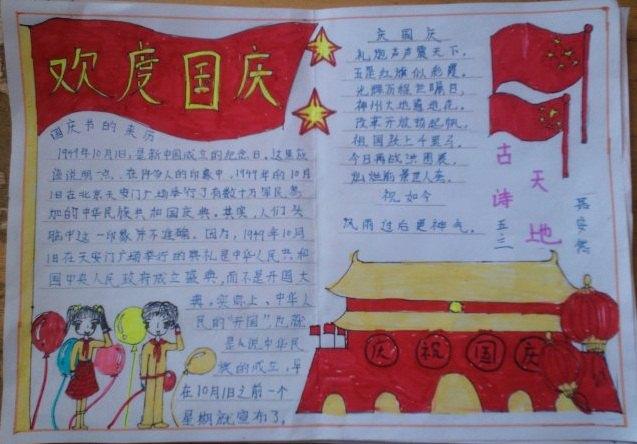 欢度国庆
国庆节的来历
1949年10月1日,是新中国成立的纪念日。这里应
该说明一点,在许多人的印象中,1949年的10月
1日在北京天安门广场举行了有数十万军民参
加的中华民族共和国庆典。其实,人们头
脑中这一印象并不准确。因为,1949年10月
1日在天安门广场举行的典礼是中华人民共和
国中央人民政府成立盛典,而不是开国大
典。实际上,中华人
民的“开国”,也就
是说中华民
族的成立,早
在10月1日之前一个
星期就宣布了。
庆国庆
礼炮声声震天下,
五星红旗似彩霞。
光辉历程
神州大地遍地花。
改革开放
祖国跃上千里马。
今日再战洪图展,
灿烂前景
祝如今
风雨过后更神气。
古诗
天地
五三
庆祝国庆